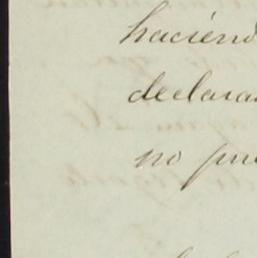 haciend
declara
no pu